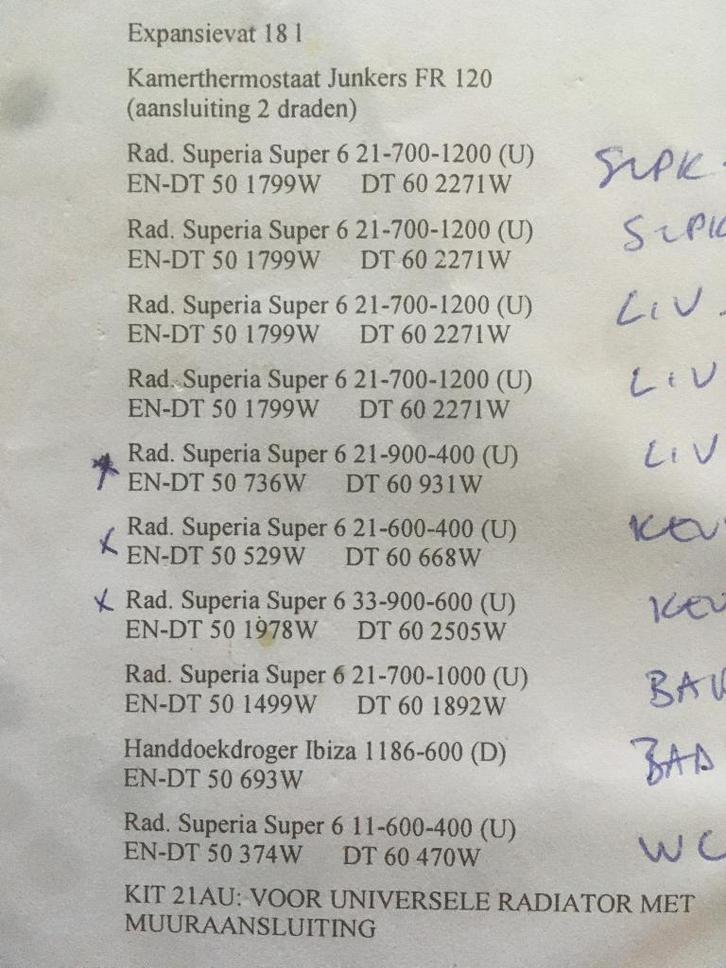 Expansievat 18 l
Kamerthermostaat Junkers FR 120
(aansluiting 2 draden)
Rad. Superia Super 6 21-700-1200 (U) SLPK
EN-DT 50 1799W DT 60 2271W
Rad. Superia Super 6 21-700-1200 (U) SLPK
EN-DT 50 1799W DT 60 2271W
Rad. Superia Super 6 21-700-1200 (U) LIV
EN-DT 50 1799W DT 60 2271W
Rad. Superia Super 6 21-700-1200 (U) LIV
EN-DT 50 1799W DT 60 2271W
Rad. Superia Super 6 21-900-400 (U) LIV
EN-DT 50 736W DT 60 931W
Rad. Superia Super 6 21-600-400 (U) KEU
EN-DT 50 529W DT 60 668W
x Rad. Superia Super 6 33-900-600 (U) KEU
EN-DT 50 1978W DT 60 2505W
Rad. Superia Super 6 21-700-1000 (U)
EN-DT 50 1499W DT 60 1892W
Handdoekdroger Ibiza 1186-600 (D) BAD
EN-DT 50 693W
Rad. Superia Super 6 11-600-400 (U) WC
EN-DT 50 374W DT 60 470W
KIT 21AU: VOOR UNIVERSELE RADIATOR MET
MUURAANSLUITING